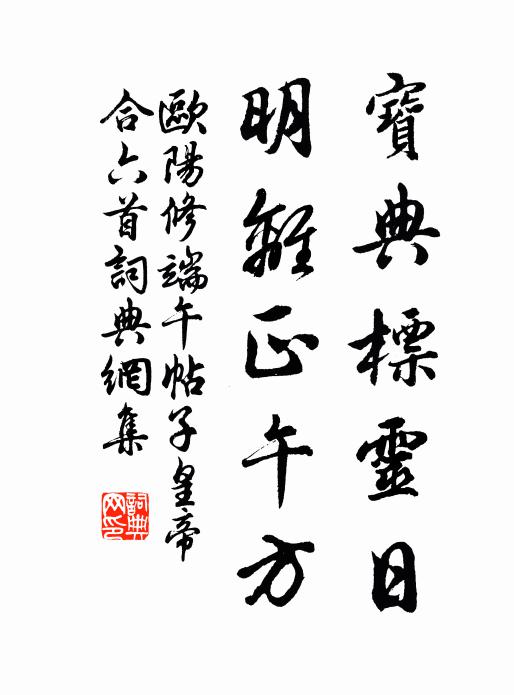 寶典標靈日
明離正午方
歐陽修端午帖子皇帝
合六首詞典網集
詞典网印